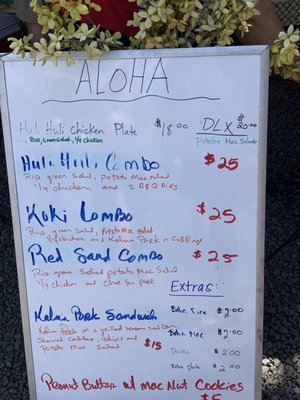 ALOHA
Huli Huli Chicken Plate $18.00 DLX $20.00
Rice, Green salad, 1/4 chicken Potatoe Mac Salad
Huli Huli Combo $25
Rice green Salad, potato Mac salad
1/4 chicken and 2 BBQ Ribs
Koki Combo $25
Rice green Salad, Potato Mac Salad
1/4 chicken and Kalua Pork
Red Sand Combo $25
Rice green Salad potato Mac Salad
1/4 chicken and Char Siu Pork
Extras:
Kalua Pork Sandwich
Kalua Pork on a grilled
Shredded Cabbage, chips and
Potato Mac Salad $15
Extra $2.00
Extra $2.00
Drinks $2.00
Extra plate $2.00
Peanut Butter w/ Mac Nut Cookies
$5